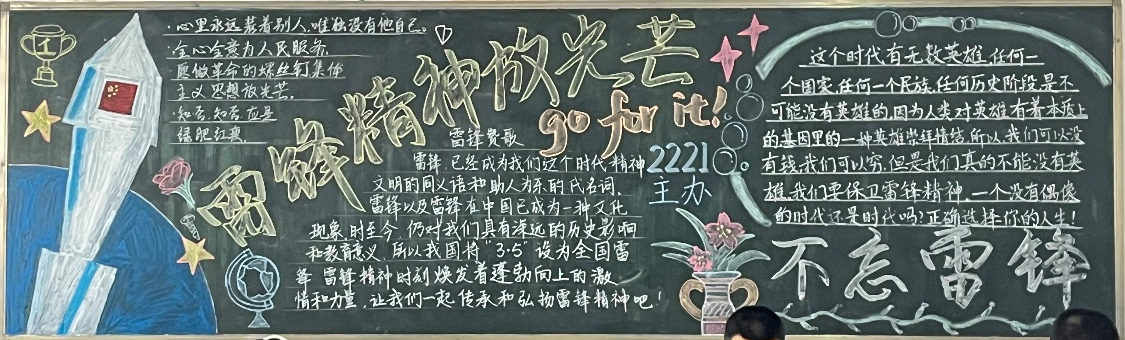 ·心里永远装着别人,唯独没有他自己。
·全心全意为人民服务.
愿做革命的螺丝钉集体
主义思想放光芒.
·知否,知否,应是
绿肥红瘦.
雷锋精神放光芒
go for it!
雷锋赞歌
雷锋,已经成为我们这个时代精神
文明的同义语和助人为乐的代名词,
雷锋以及雷锋在中国已成为一种文化
现象,时至今,仍对我们具有深远的历史影响
和教育意义,所以我国将"3·5"设为全国雷
锋,雷锋精神时刻焕发着蓬勃向上的激
情和力量,让我们一起传承和弘扬雷锋精神吧!
2221
主办
这个时代有无数英雄,任何一
个国家,任何一个民族,任何历史阶段,是不
可能没有英雄的,因为人类对英雄有着本质上
的基因里的一种英雄崇拜情结,所以,我们可以没
有钱,我们可以穷,但是我们真的不能没有英
雄,我们要保卫雷锋精神,一个没有偶像
的时代还是时代吗?正确选择你的人生!
不忘雷锋